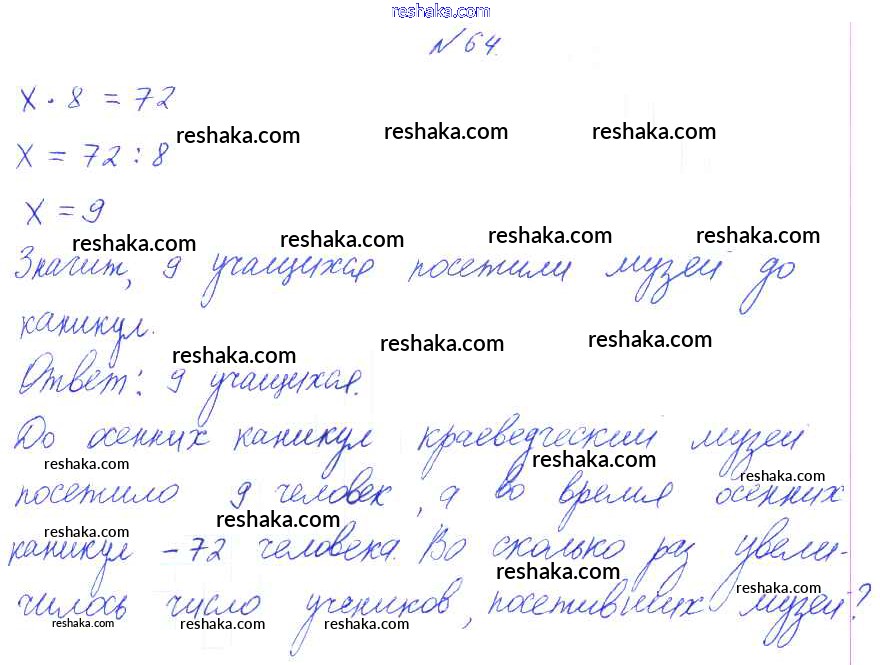 reshaka.com
№ 64.
x · 8 = 72
reshaka.com reshaka.com reshaka.com
x = 72 : 8
x = 9
reshaka.com reshaka.com reshaka.com reshaka.com
Значит, 9 учащихся посетили музей до
каникул.
reshaka.com reshaka.com reshaka.com
Ответ: 9 учащихся.
До осенних каникул краеведческий музей
reshaka.com reshaka.com reshaka.com
посетило 9 человек, а во время осенних
reshaka.com reshaka.com
каникул – 72 человека. Во сколько раз увели-
reshaka.com reshaka.com
чилось число учеников, посетивших музей?
reshaka.com reshaka.com reshaka.com